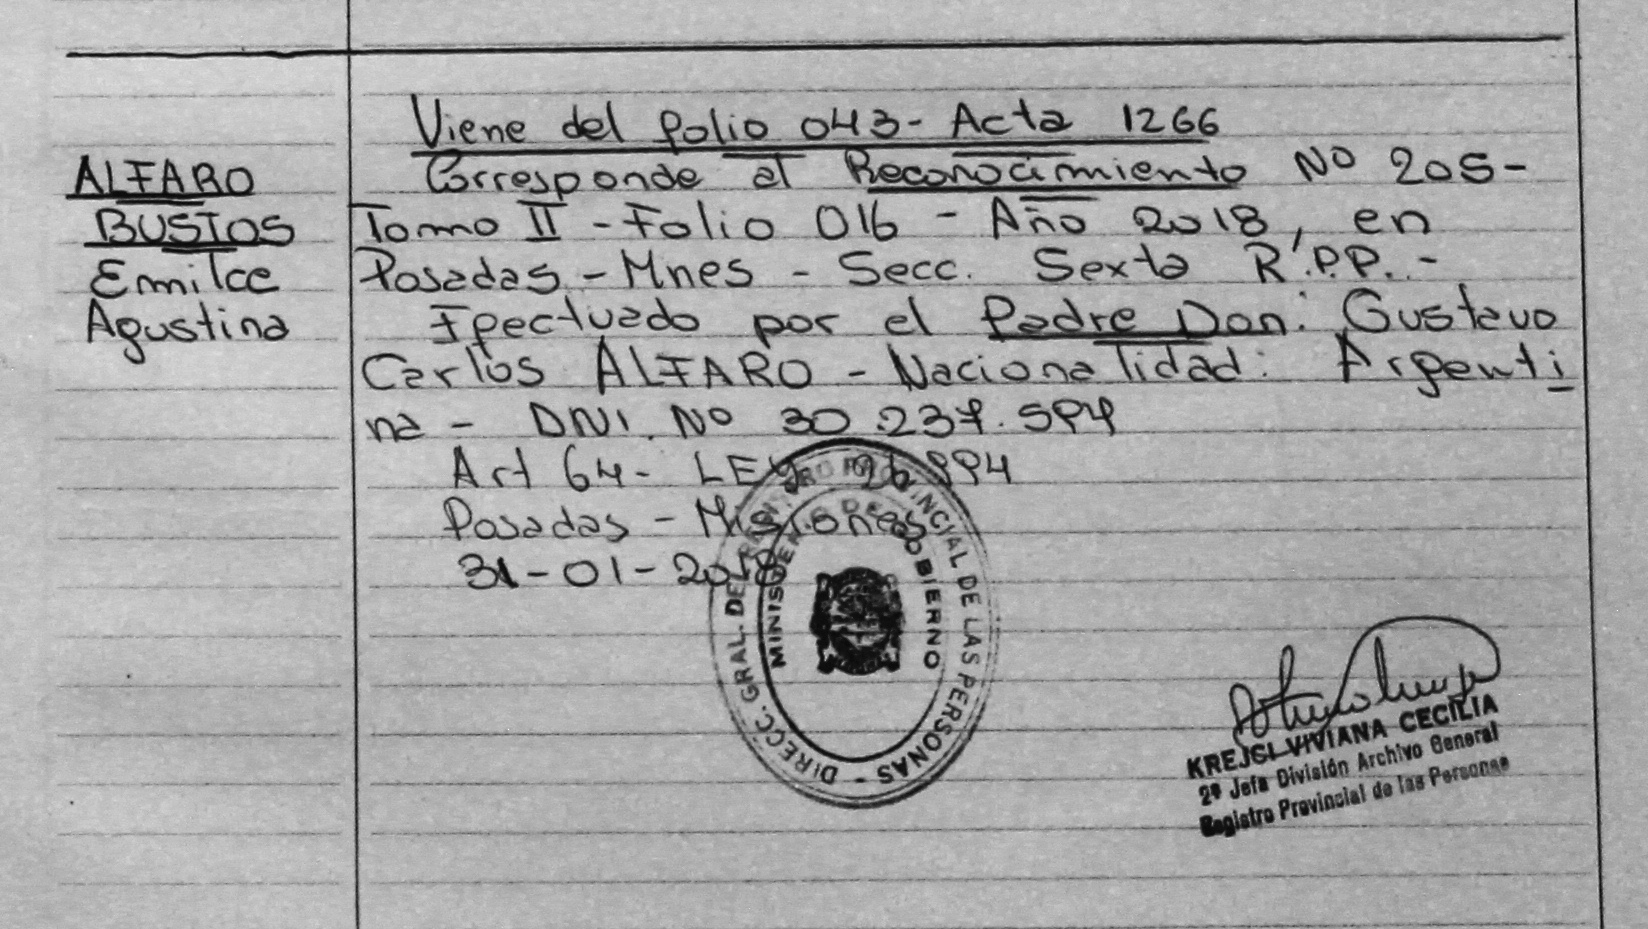 Viene del folio 043- Acta 1266
ALFARO
BUSTOS
Emilce
Agustina
Corresponde al Reconocimiento Nº 205-
Tomo II - Folio 016 - Año 2018, en
Posadas - Mnes - Secc. Sexta R.P.P. -
Efectuado por el Padre Don: Gustavo
Carlos ALFARO - Nacionalidad: Argenti
na - DNI. Nº 30.237.594
Art 64- LEY 26994
Posadas - Misiones
31-01-2018
DIRECC. GRAL. DEL REGISTRO PROVINCIAL DE LAS PERSONAS -
MINISTERIO DE GOBIERNO
KREJSI VIVIANA CECILIA
2º Jefa División Archivo General
Registro Provincial de las Personas